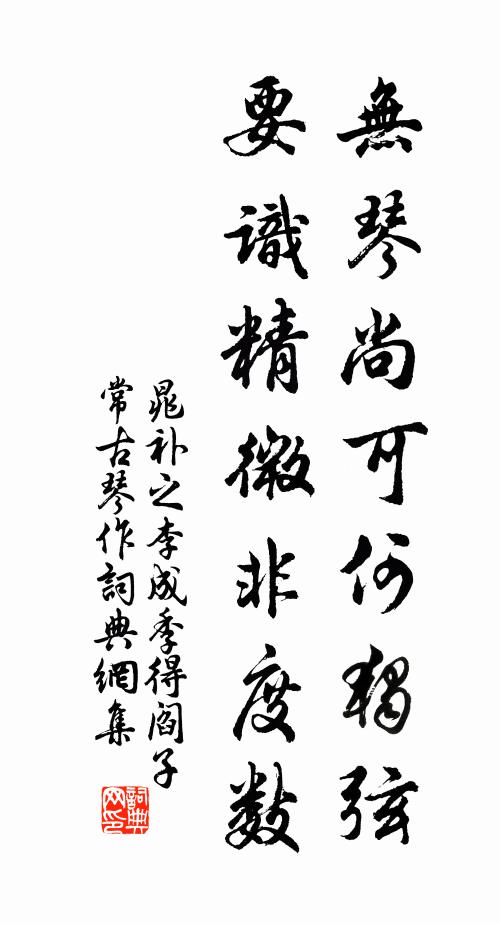 無琴尚可何獨弦
要識精微非度數
晁补之李成季得阎子
常古琴作詞典網集
詞典网印